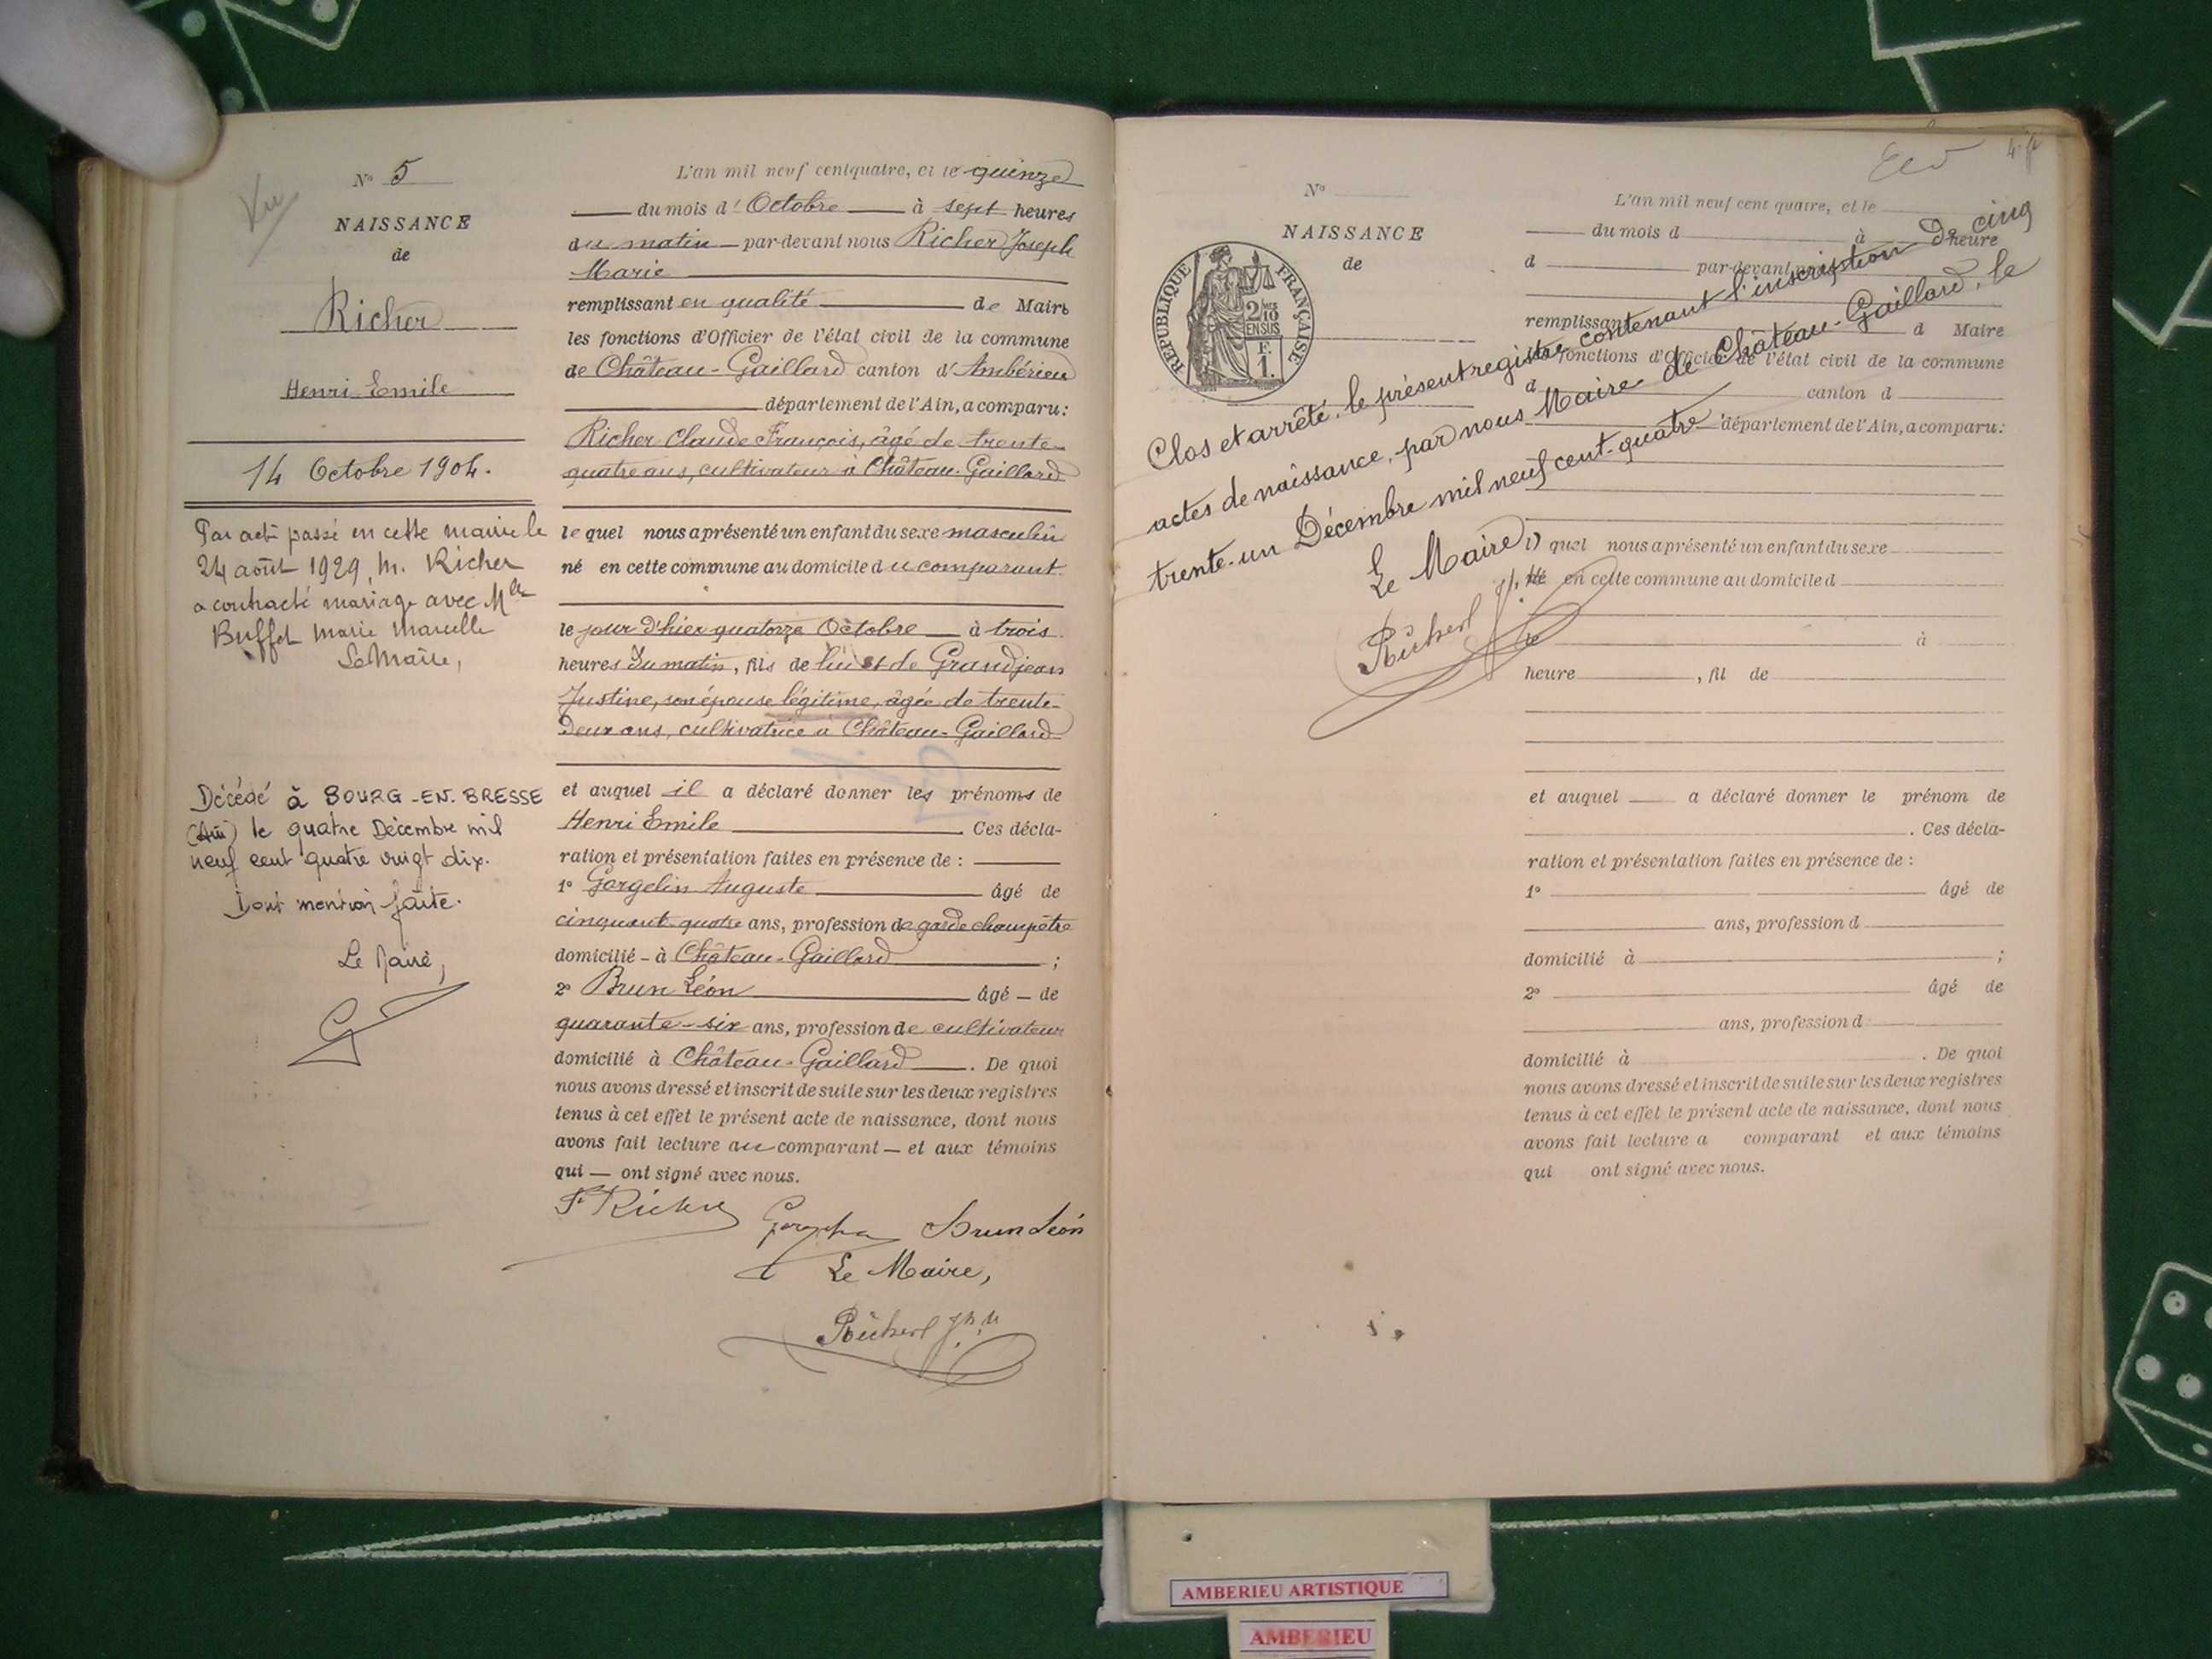 Vu
N° 5
NAISSANCE
de
Richer
Henri Emile
14 Octobre 1904.
Par acte passé en cette mairie le
24 août 1929, M. Richer
a contracté mariage avec Mlle
Buffet Marie Marcelle
Le Maire,
Décédé à BOURG-EN-BRESSE
(Ain) le quatre Décembre mil
neuf cent quatre vingt dix.
Dont mention faite.
Le Maire,
L'an mil neuf cent quatre, et le quinze
du mois d'Octobre à sept heures
du matin par-devant nous Richer Joseph
Marie
remplissant en qualité de Maire
les fonctions d'Officier de l'état civil de la commune
de Château-Gaillard canton d'Ambérieu
département de l'Ain, a comparu:
Richer Claude François, âgé de trente-
quatre ans, cultivateur à Château-Gaillard
lequel nous a présenté un enfant du sexe masculin
né en cette commune au domicile du comparant
le jour d'hier quatorze Octobre à trois
heures du matin, fils de lui et de Grandjean
Justine, son épouse légitime, âgée de trente-
deux ans, cultivatrice à Château-Gaillard
et auquel il a déclaré donner les prénoms de
Henri Emile . Ces décla-
ration et présentation faites en présence de :
1° Gorgelin Auguste âgé de
cinquante-quatre ans, profession de garde champêtre
domicilié à Château-Gaillard ;
2° Brun Léon âgé de
quarante-six ans, profession de cultivateur
domicilié à Château-Gaillard . De quoi
nous avons dressé et inscrit de suite sur les deux registres
tenus à cet effet le présent acte de naissance, dont nous
avons fait lecture au comparant et aux témoins
qui ont signé avec nous.
F Richer
Brun Léon
Le Maire,
N°
NAISSANCE
de
RÉPUBLIQUE FRANÇAISE
2/10 EN SUS
F. 1.
L'an mil neuf cent quatre, et le
du mois d à heure
d par-devant nous
remplissant d Maire
les fonctions d'Officier de l'état civil de la commune
d canton d
département de l'Ain, a comparu:
Clos et arrêté, le présent registre contenant l'inscription de cinq
actes de naissance, par nous Maire de Château-Gaillard, le
trente-un Décembre mil neuf cent-quatre
Le Maire
l quel nous a présenté un enfant du sexe
né en cette commune au domicile d
le à
heure , fil de
et auquel a déclaré donner le prénom de
. Ces décla-
ration et présentation faites en présence de :
1° âgé de
ans, profession d
domicilié à ;
2° âgé de
ans, profession d
domicilié à . De quoi
nous avons dressé et inscrit de suite sur les deux registres
tenus à cet effet le présent acte de naissance, dont nous
avons fait lecture a comparant et aux témoins
qui ont signé avec nous.
AMBERIEU ARTISTIQUE
AMBERIEU